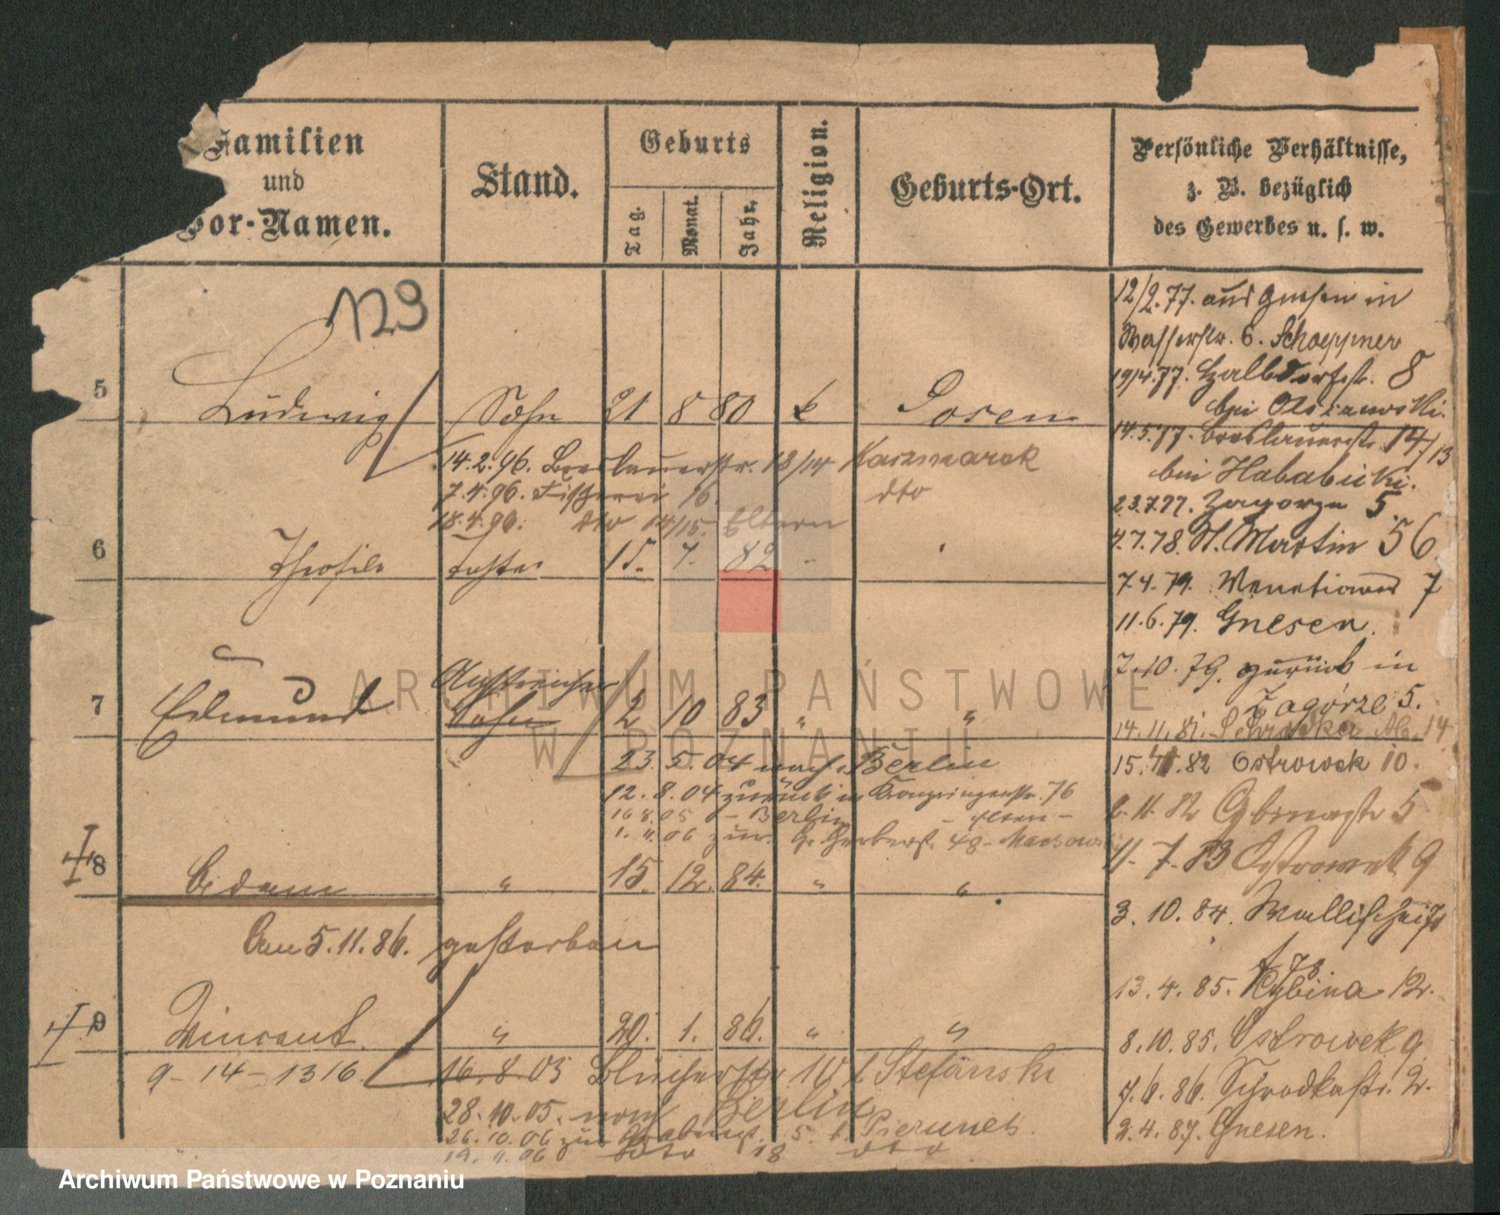 Familien
und
Vor-Namen.
Stand.
Geburts
Tag.
Monat.
Jahr.
Religion.
Geburts-Ort.
Persönliche Verhältnisse,
z. B. bezüglich
des Gewerbes u. s. w.
129
5 Ludwig Sohn 21 8 80 k Posen
14.2.96. Breslauerstr. 13/14 Kaczmarek
7.4.96. Fischerei 16. dto
18.4.96. dto 14/15. Eltern
6 Theofila Tochter 15. 7. 82
7 Edmund Sohn 2 10 83 " "
23. 5. 04 nach Berlin
12. 8. 04 zurück in Kronprinzenstr. 76
16 8 05 - Berlin - Eltern -
1. 11. 06 zur. Gr. Gerberstr. 48
8 " 15. 12. 84. " "
Am 5.11.86. gestorben
9 Vincent " 20. 1. 86. " "
9 - 14 - 1316.
16. 8. 05 Blücherstr. 10 b. Stefanski
28. 10. 05. nach Berlin
26. 10. 06 zur. 5. b.
19. 11. 06 dto 18 dto
12/2.77. aus Gnesen in
Wasserstr. 6.
19/4.77. Halbdorfstr. 8
bei Olszewski.
14.5.77. Breslauerstr. 14/13
bei Hababicki.
23.7.77. Zagorze 5.
4.7.78. St. Martin 56
7.4.79. Venetianerstr. 7
11.6.79. Gnesen.
2.10.79. zurück in
Zagórze 5.
14.11.81. Schrodka 14
15. 82 Ostrowek 10.
2. 11. 82 5
11. 7. 83 Ostrowek 9
3. 10. 84. Wallischei
13. 4. 85. Rybina 12.
8. 10. 85. Ostrowek 9
7. 6. 86. Schrodkastr. 2.
2. 4. 87. Gnesen.
ARCHIWUM PAŃSTWOWE
W POZNANIU
Archiwum Państwowe w Poznaniu